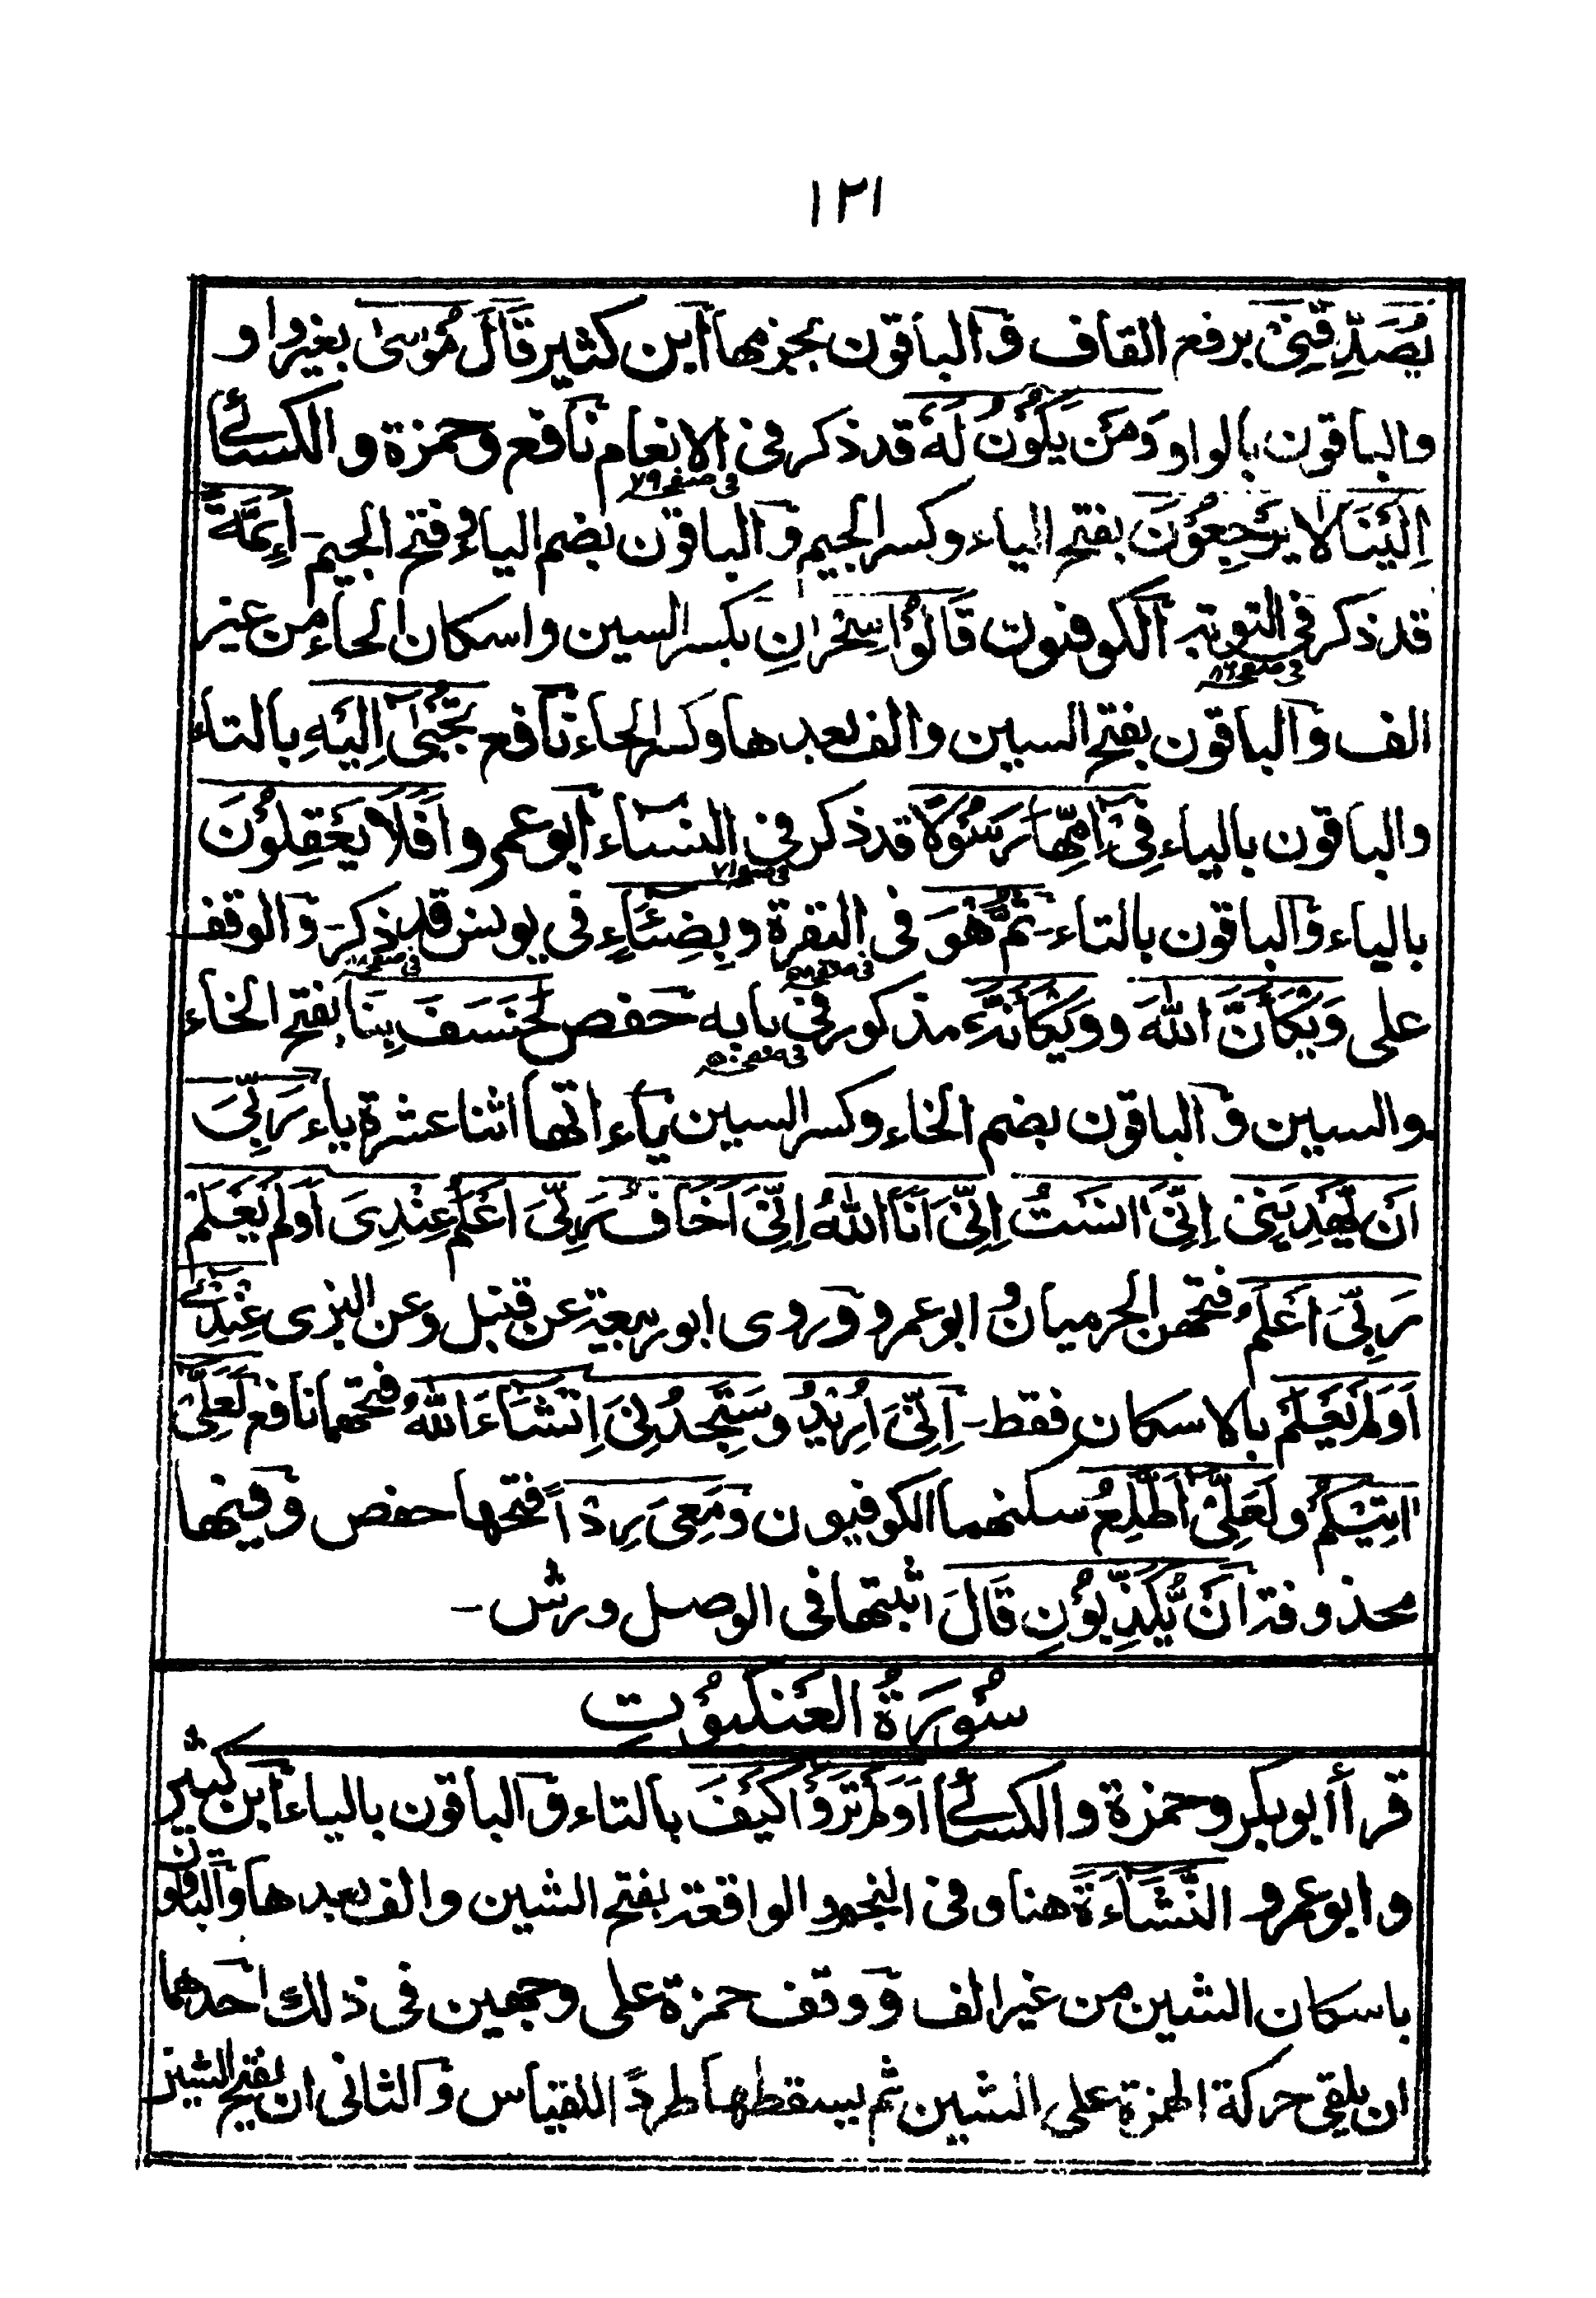 ١٢١
يُصَدِّقُنِيْ برفع القاف و الباقون بجزمها ابن كثير قَالَ مُوْسىٰ بغير واو
والباقون بالواو وَمَنْ يَكُوْنُ لَهٗ قد ذكر في الانعام نافع وحمزة والكسائي
في صفحہ ٧٩
اِلَيْنَا لَا يَرْجِعُوْنَ بفتح الياء وكسر الجيم و الباقون بضم الياء وفتح الجيم - اَئِمَّةً
قد ذكر في التوبة الكوفيون قَالُوْا سِحْرَانِ بكسر السين واسكان الحاء من غير
في صفحہ ٨٦
الف و الباقون بفتح السين والف بعدها وكسر الحاء نافع تُجْبىٰٓ اِلَيْهِ بالتاء
والباقون بالياء فِيْٓ اِمِّهَا رَسُوْلًا قد ذكر في النساء ابو عمرو اَفَلَا يَعْقِلُوْنَ
في صفحہ ٧١
بالياء و الباقون بالتاء - ثُمَّ هُوَ في البقرة وبِضِيَآءٍ في يونس قد ذكر - و الوقف
في صفحہ ٥٨
على وَيْكَاَنَّ اللّٰهَ وويْكَاَنَّهٗ مذكور في بابه حفص لَخَسَفَ بِنَا بفتح الخاء
في صفحہ ٥٠
والسين و الباقون بضم الخاء وكسر السين ياءاتها اثنا عشرة ياء رَبِّيَ
اَنْ يَّهْدِيَنِيْ اِنِّيَ اٰنَسْتُ اِنِّيَ اَنَا اللّٰهُ اِنِّيَ اَخَافُ رَبِّيَ اَعْلَمُ عِنْدِيَ اَوَلَمْ يَعْلَمْ
رَبِّيَ اَعْلَمُ فتحهن الحرميان و ابو عمرو و روى ابو ربيعة عن قنبل وعن البزي عِنْدِيْ
اَوَلَمْ يَعْلَمْ بالاسكان فقط - اِنِّيَ اُرِيْدُ وسَتَجِدُنِيَ اِنْشَآءَ اللّٰهُ فتحهما نافع لَعَلِّيْ
اٰتِيْكُمْ ولَعَلِّيْ اَطَّلِعُ سكنهما الكوفيون ومَعِيَ رِدْاً فتحها حفص و فيها
محذوفة اَنْ يُّكَذِّبُوْنِ قَالَ اثبتها في الوصل ورش -
سُوْرَةُ الْعَنْكَبُوْتِ
قرأ ابو بكر وحمزة والكسائي اَوَلَمْ تَرَوْا كَيْفَ بالتاء و الباقون بالياء ابن كثير
وابو عمرو النَّشَآءَةَ هنا وفي النجم والواقعة بفتح الشين والف بعدها والباقون
باسكان الشين من غير الف و وقف حمزة على وجهين في ذلك احدهما
ان يلقى حركة الهمزة على الشين ثم يسقطها طرداً للقياس و الثاني ان يفتح الشين